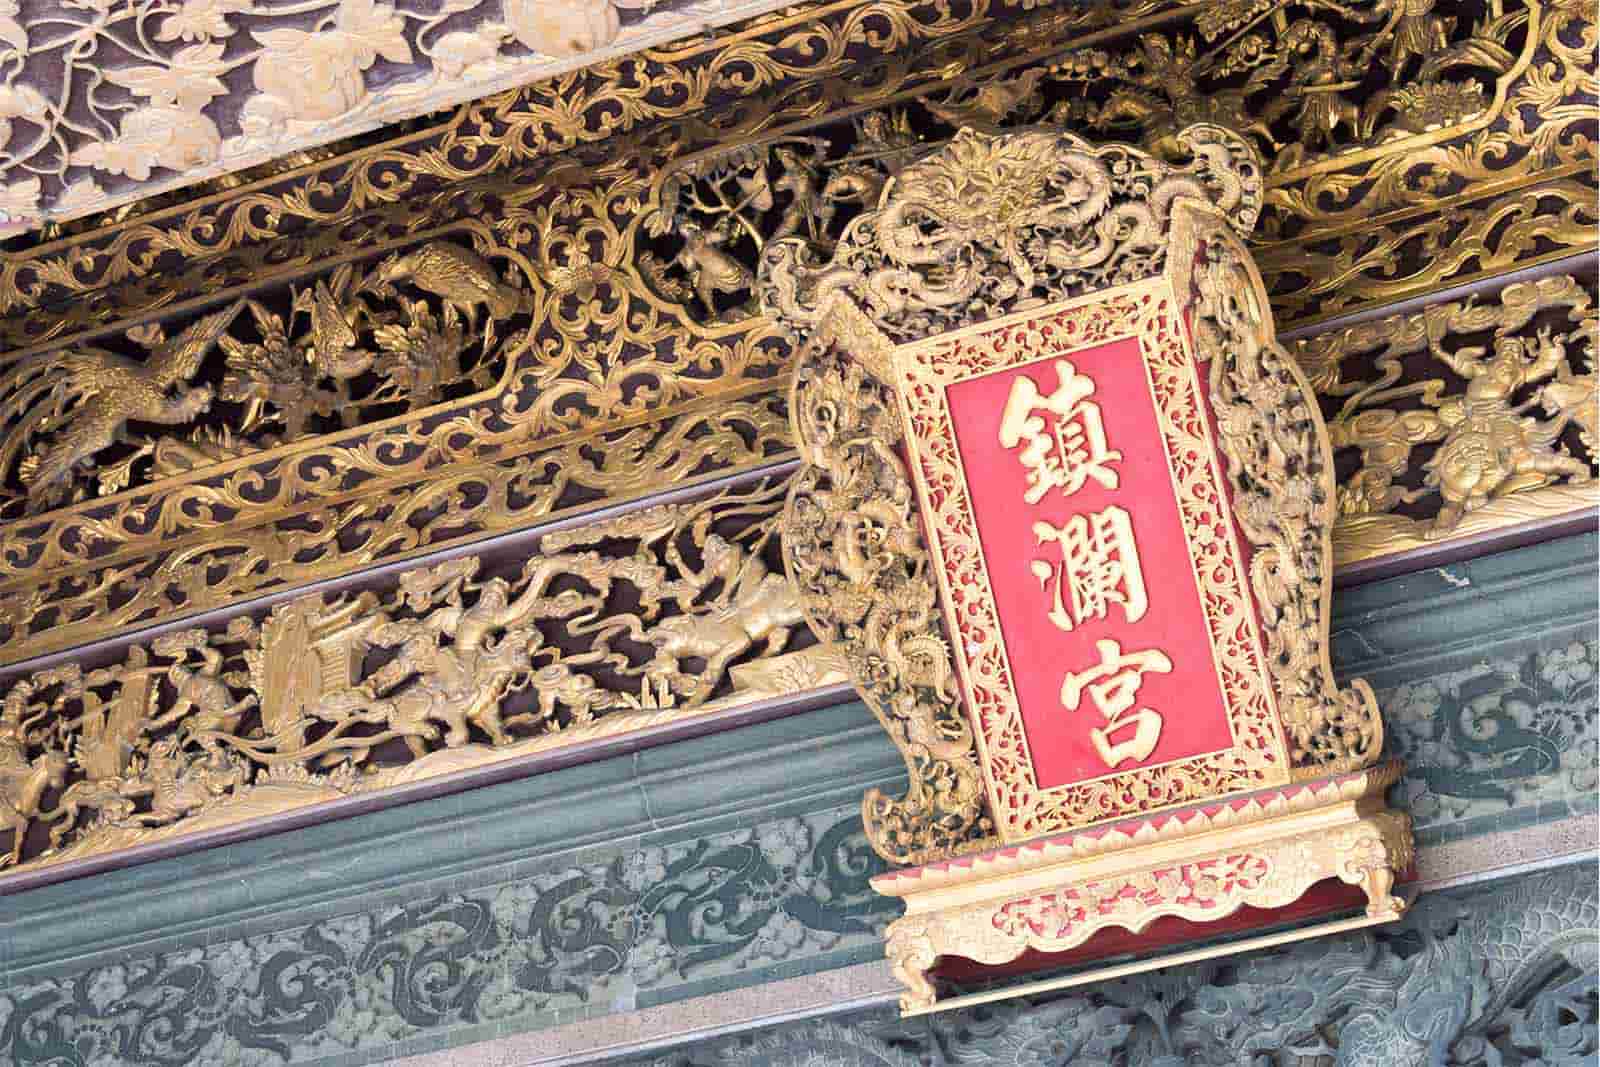 鎮瀾宮